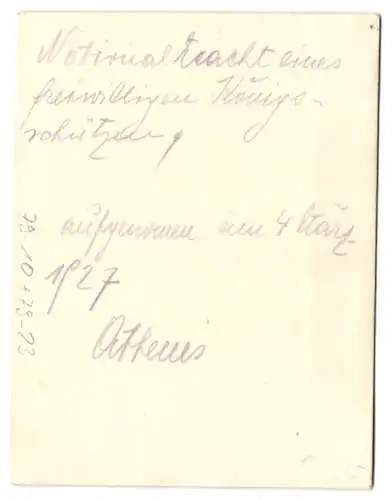 Notional tracht eines
freiwilligen Königs-
schützen,
aufgenomen am 4 März
1927
Athens